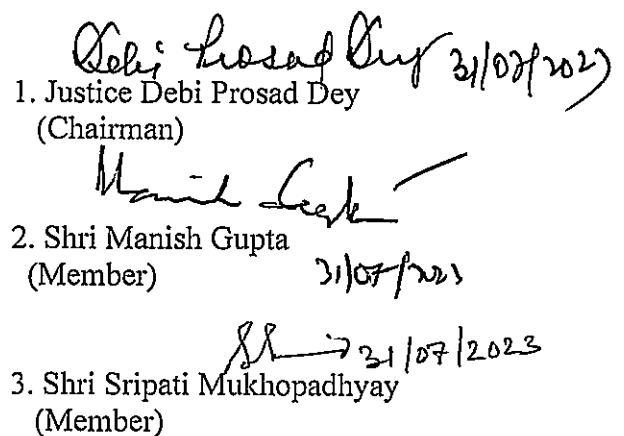 Debi Prosad Dey 31/07/2023
1. Justice Debi Prosad Dey
(Chairman)
Manish Gupta
2. Shri Manish Gupta
(Member)
31/07/2023
31/07/2023
3. Shri Sripati Mukhopadhyay
(Member)